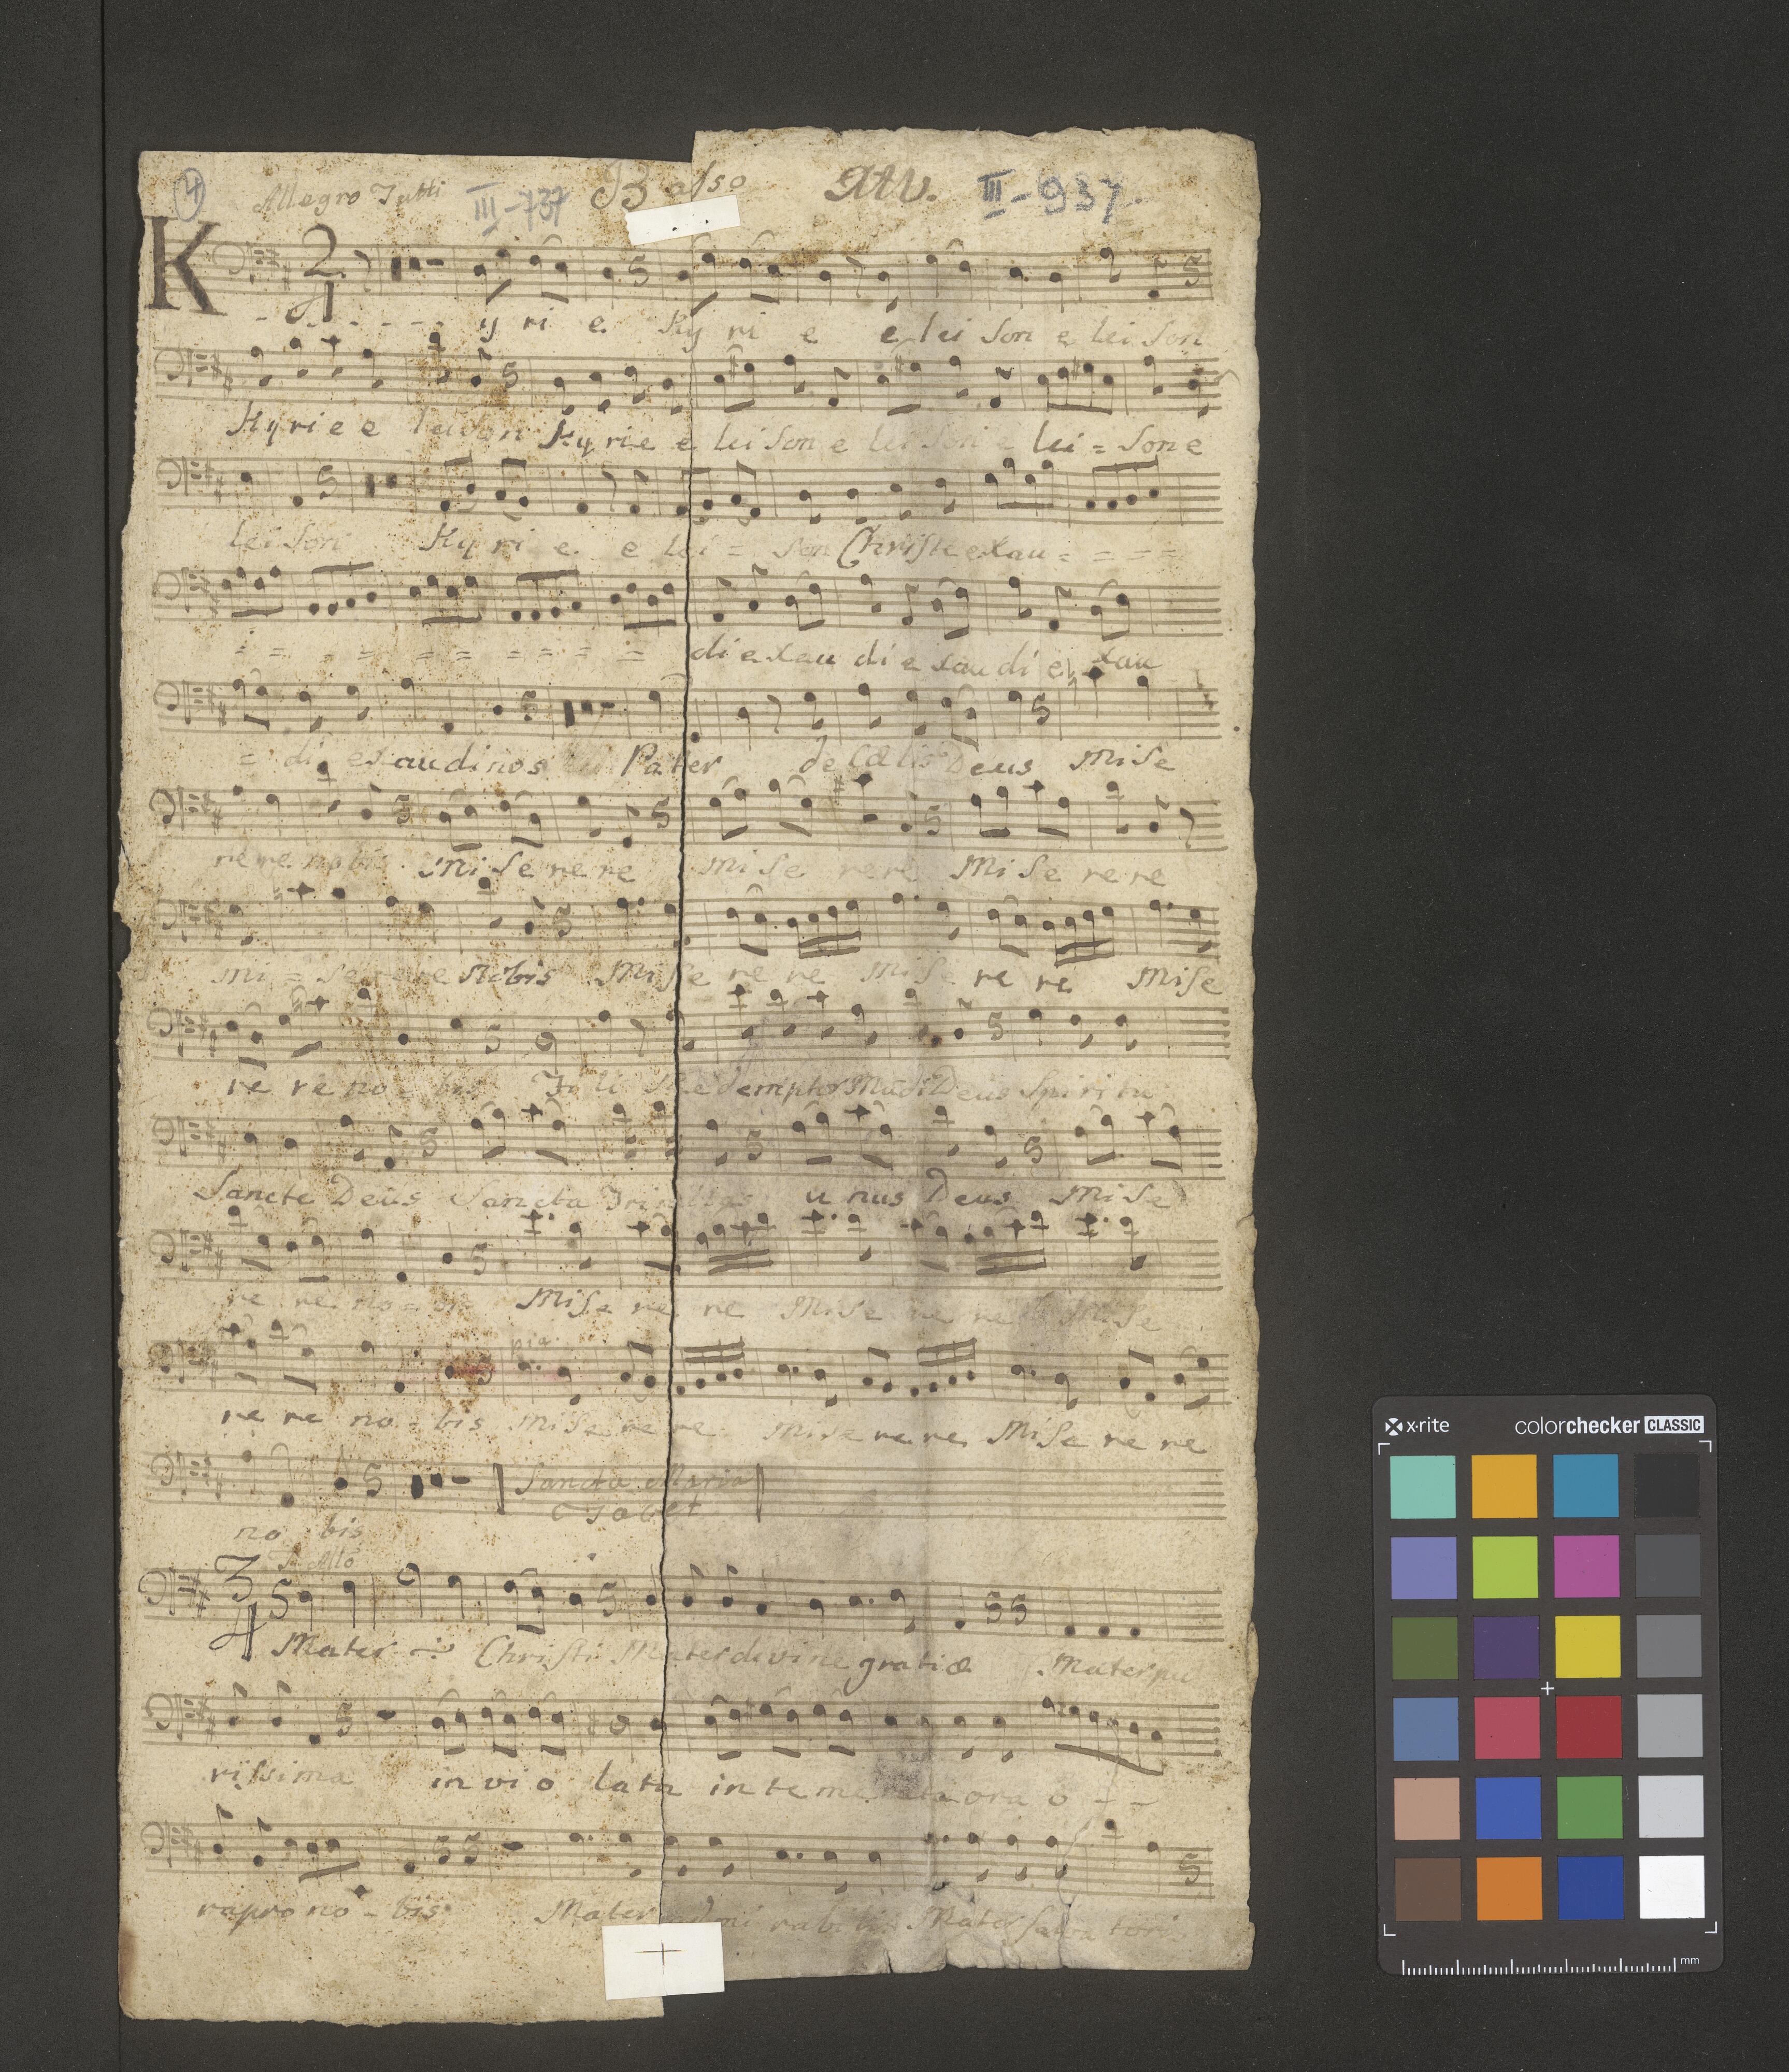 4 Allegro Tutti III-737 Basso Atv. III-937.
K 2/4
- - - - - - - y ri e Ky ri e e lei son e lei son
Kyrie e leison Kyrie e lei son e lei son e lei = son e
lei son Ky ri e e lei = son Christe exau = = = =
= = = = = = = = = = di exau di e xau di e xau
= di exaudi nos Pater de Cœlis Deus Mise
re re nobis Mi se re re mi se re re Mi se re re
mi = se re re Nobis Mi se re re Mi se re re Mise
re re no - bis Fi li Redemptor Mūdi Deus Spiritu
Sancte Deus Sancta Trinitas u nus Deus Mi se
re re no = Mi se re re Mi se re re Mi se
pia
re re no - bis Mi se re re Mi se re re Mi se re re
Sancta Maria
Tacet
no bis
T. Allo
3/4
Mater Christi Mater divine gratiæ Mater pu
rissima in vi o lata in te me rata ora o - -
rapro no - bis Mater admi rabilis Mater salva toris
x·rite colorchecker CLASSIC
mm